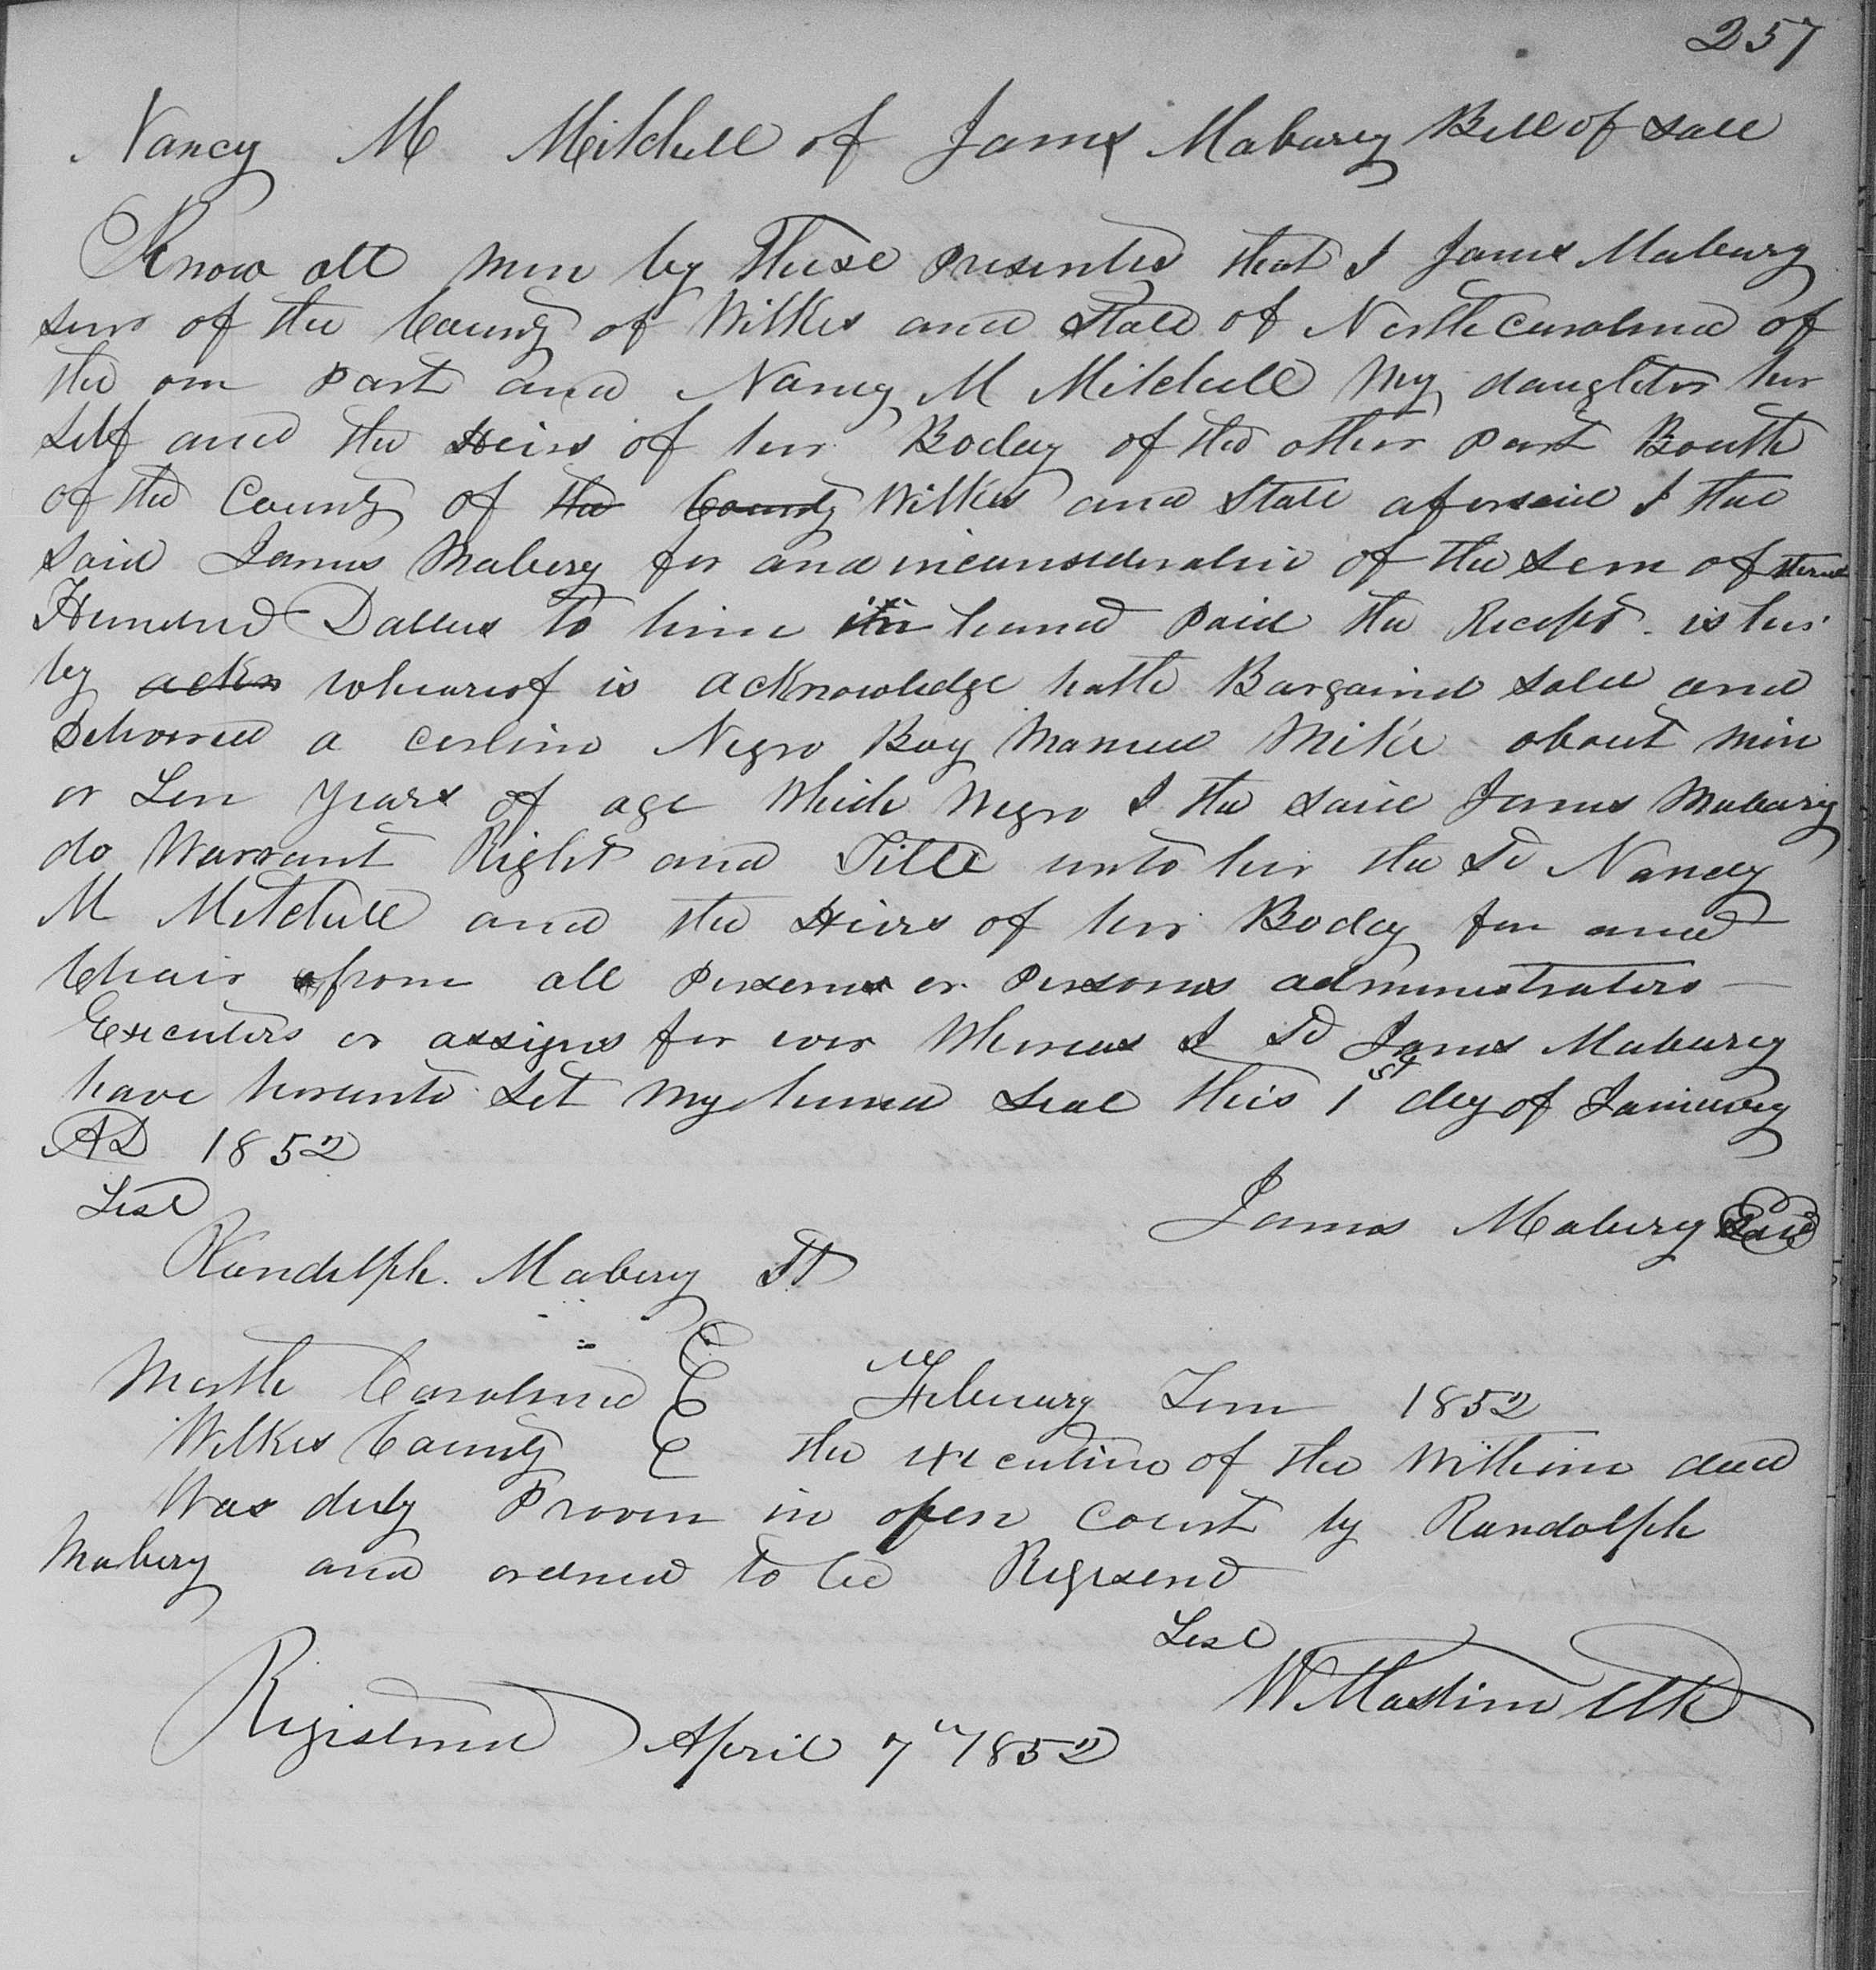 257
Nancy M Mitchell of James Mabary Bill of Sale
Know all men by These Presentes that I James Mabery
senr of the County of Wilkes and State of North carolina of
the one Part and Nancy M Mitchell My daughter her
self and the Heirs of her Boday of the other part Bouth
of the County of the County Wilkes and State afersaid I the
Said James Mabery for and in consideratin of the Sem of three
Hundred Dollers to him in hand Paid the Recept is her
by ackn wheareof is acknowledge hath Bargaind Sold and
Deliverred a certin Negro Boy Named Mike about nine
or Ten years of age Which Negro I the Said James Mabary
do Warrant Right and Title unto her the Sd Nancy
M Mitchell and the Heirs of her Boday from all Persons or Persons administraters
Executers or assigns for ever Whereas I Sd James Mabarey
have hereunto Set My hand Seal this 1st day of January
AD 1852
Test
James Mabery Seal
Randolph. Mabery Jt
North Carolina February Term 1852
Wilkes County the execution of the Within deed
Was duly Proven in open Court by Randolph
Mabery and ordered to be Regisered
Test
W Mastin Clk
Registered April 7th 1852